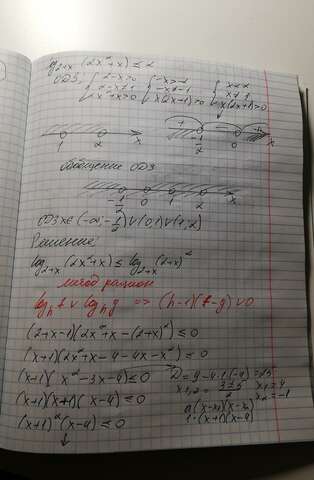 log₂₊ₓ (2x²+x) ≤ 2
ОДЗ: { 2-x>0 { -x>-2 { x<2
2-x≠1 -x≠-1 x≠1
2x²+x>0 x(2x+1)>0 x(2x+1)>0
1 2 x -1/2 0 x
обобщение ОДЗ
-1/2 0 1 2 x
ОДЗ x∈(-∞;-1/2)∨(0;1)∨(1;2)
Решение:
log₂₊ₓ (2x²+x) ≤ log₂₊ₓ (2+x)²
метод рацион
logₕ f ∨ logₕ g => (h-1)(f-g)∨0
(2+x-1)(2x²+x-(2+x)²) ≤0
(x+1)(2x²+x-4-4x-x²) ≤0
(x+1)(x²-3x-4) ≤0
(x+1)(x+1)(x-4) ≤0
(x+1)²(x-4) ≤0
x₁,₂= 3±5/2 x₁=4
x₂=-1
a(x-x₁)(x-x₂)
1·(x+1)(x-4)